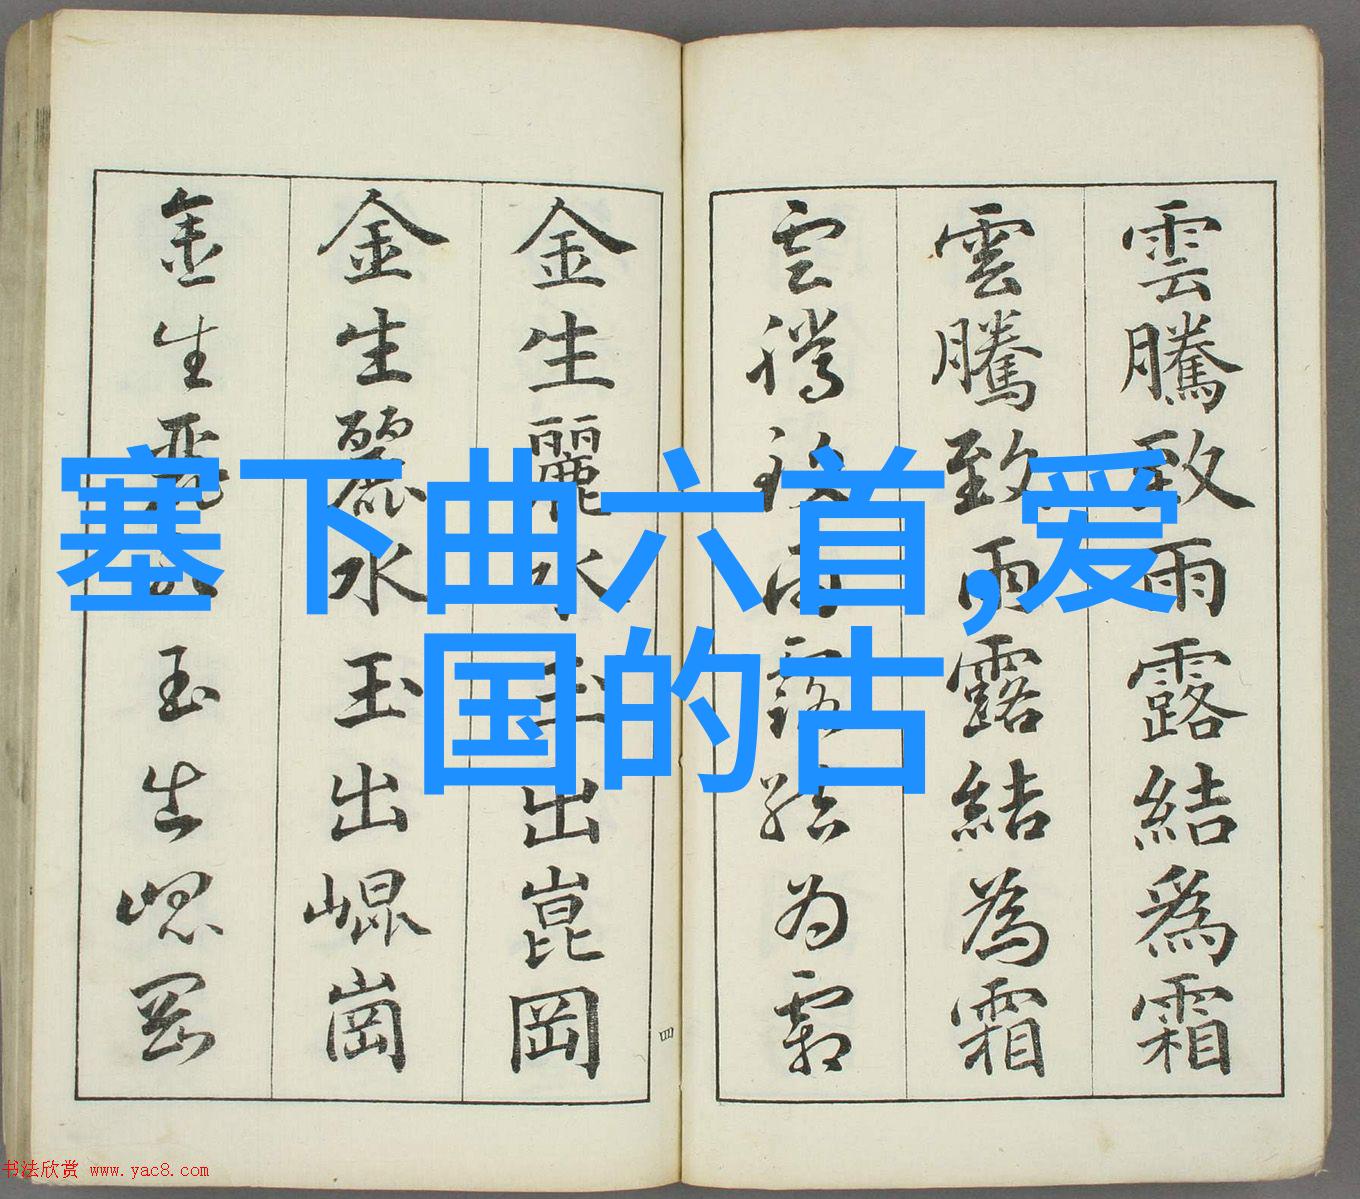 塞下曲六首,爱
国的古
雲騰致雨露結爲霜
雲騰致雨露結為霜
雲騰致雨露結为霜
四
金生麗水玉出崑岡
金生麗水玉出崐崗
金生麗水玉出崐岡
书法欣赏 www.yac8.com